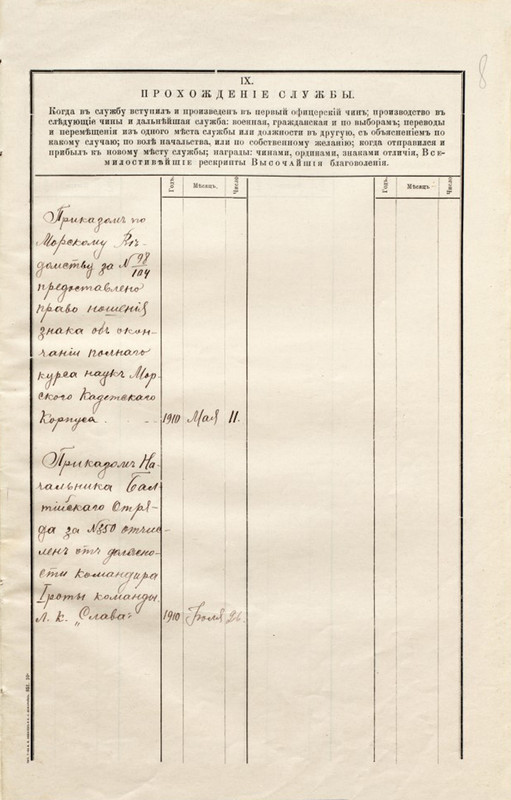 8
IX.
ПРОХОЖДЕНІЕ СЛУЖБЫ.
Когда въ службу вступилъ и произведенъ въ первый офицерскій чинъ; производство въ
слѣдующіе чины и дальнѣйшая служба: военная, гражданская и по выборамъ; переводы
и перемѣщенія изъ одного мѣста службы или должности въ другую, съ объясненіемъ по
какому случаю; по волѣ начальства, или по собственному желанію; когда отправился и
прибылъ къ новому мѣсту службы; награды: чинами, орденами, знаками отличія, Все-
милостивѣйшіе рескрипты Высочайшія благоволенія.
Годъ. Мѣсяцъ. Число Годъ. Мѣсяцъ. Число
Приказомъ по
Морскому Вѣ-
домству за № 98/104
предоставлено
право ношенія
знака объ окон-
чаніи полнаго
курса наукъ Мор-
ского Кадетскаго
Корпуса . . . 1910 Мая 11.
Приказомъ На-
чальника Бал-
тійскаго Отря-
да за №350 отчис-
ленъ отъ должно-
сти командира
I роты команды
л. к. „Слава“ 1910 Іюля 26